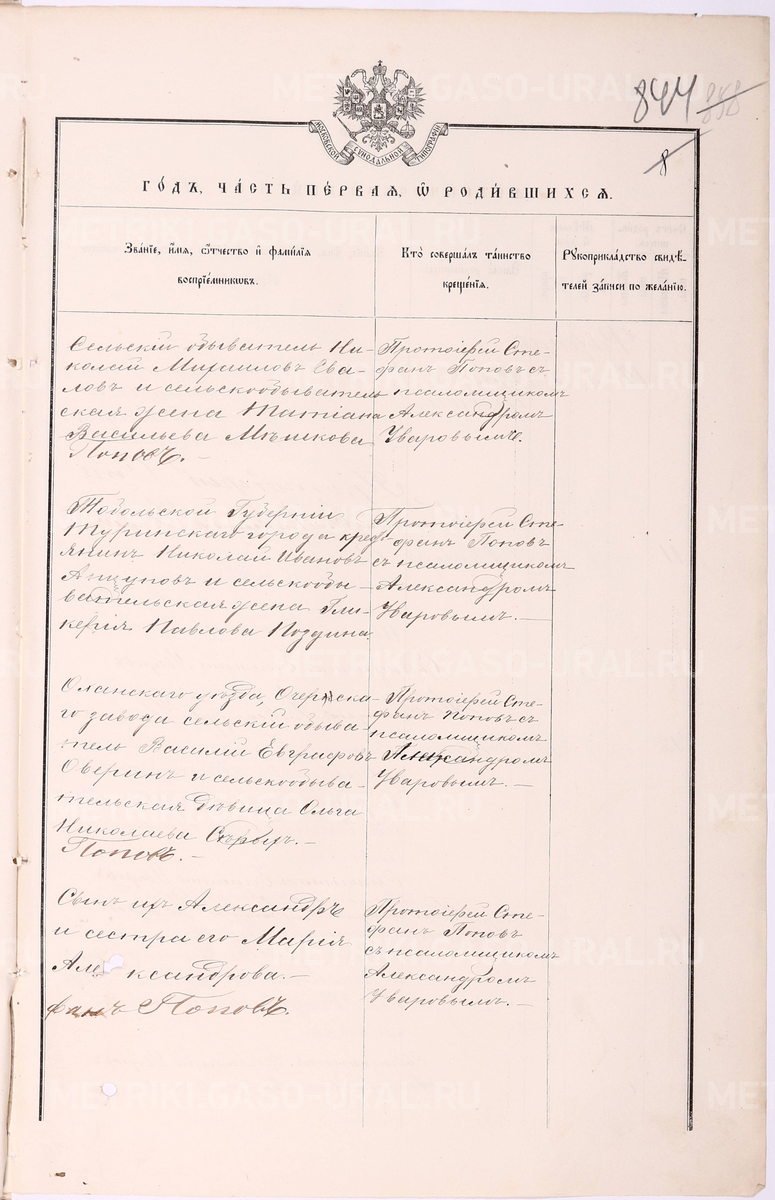 844
838
8
МОСКОВСКОЙ СѴНОДАЛЬНОЙ ТИПОГРАФІИ
ГО́ДЪ, ЧА́СТЬ ПЕ́РВАЯ, Ѽ РОДИ́ВШИХСЯ.
Зва́нїе, и҆́мя, ѻ҆́тчество и҆ фами́лїя
воспрїе́мникѡвъ.
Кто̀ соверша́лъ та́инство
креще́нїя.
Рꙋкоприкла́дство свидѣ́-
телей за́писи по жела́нїю.
Сельскій обыватель Ни-
колай Михаиловъ Ева-
ловъ и сельскообыватель
ская жена Татіана
Васильева Мѣшкова
Поповъ.
Протоіерей Сте-
фанъ Поповъ съ
псаломщикомъ
Александромъ
Уваровымъ.
Тобольской Губерніи
Туринскаго города крест
янинъ Николай Ивановъ
и сельскообы-
вательская жена Гли-
керія Павлова Поздина
Протоіерей Сте-
фанъ Поповъ
съ псаломщикомъ
Александромъ
Уваровымъ. —
Оханскаго уѣзда, Очерска-
го завода сельскій обыва-
тель Василій Евграфовъ
Оверинъ и сельскообыва-
тельская дѣвица Ольга
Николаева
Поповъ. —
Протоіерей Сте-
фанъ Поповъ съ
псаломщикомъ
Александромъ
Уваровымъ. —
Сынъ ихъ Александръ
и сестра его Марія
Александрова. —
фанъ Поповъ.
Протоіерей Сте-
фанъ Поповъ
съ псаломщикомъ
Александромъ
Уваровымъ. —
METRIKI.GASO-URAL.RU